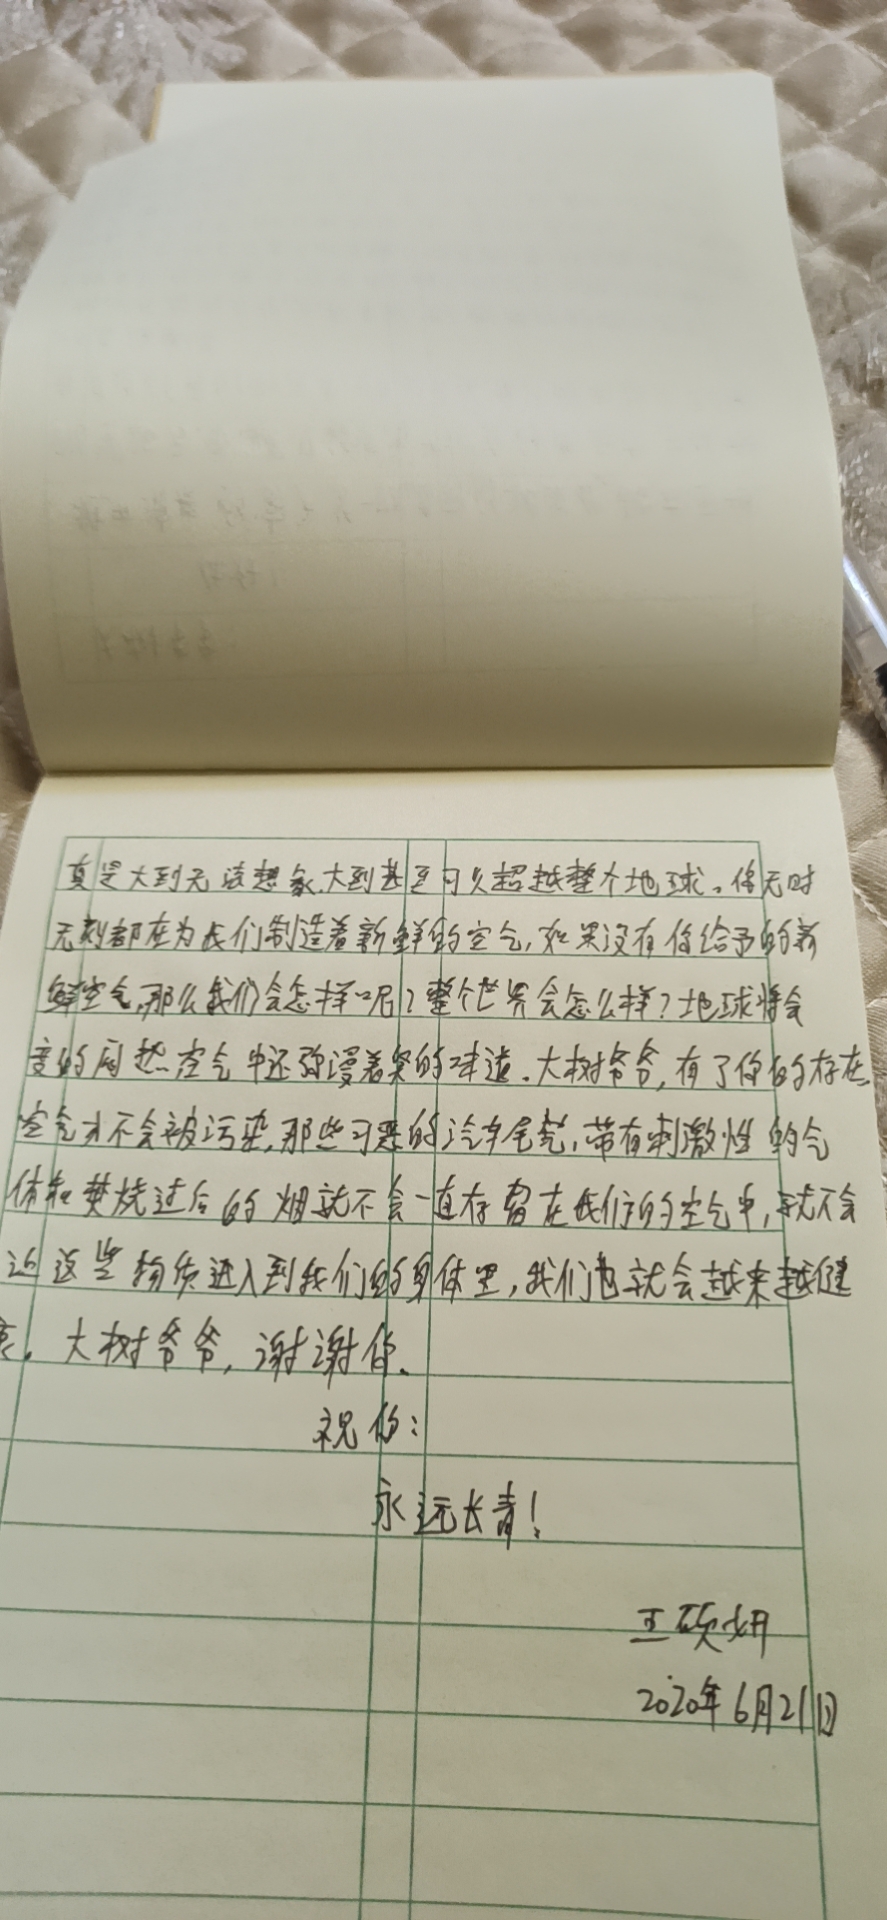 真是大到无法想象,大到甚至可以超越整个地球。你无时
无刻都在为我们制造着新鲜的空气,如果没有你给予的新
鲜空气,那么我们会怎样呢?整个世界会怎么样?地球将会
变的闷热空气中还弥漫着臭的味道。大树爷爷,有了你的存在,
空气才不会被污染,那些可恶的汽车尾气,带有刺激性的气
体和焚烧过后的烟就不会一直存留在我们的空气中,就不会
这些物质进入到我们的身体里,我们也就会越来越健
康。大树爷爷,谢谢你。
祝你:
永远长青!
王硕妍
2020年6月21日